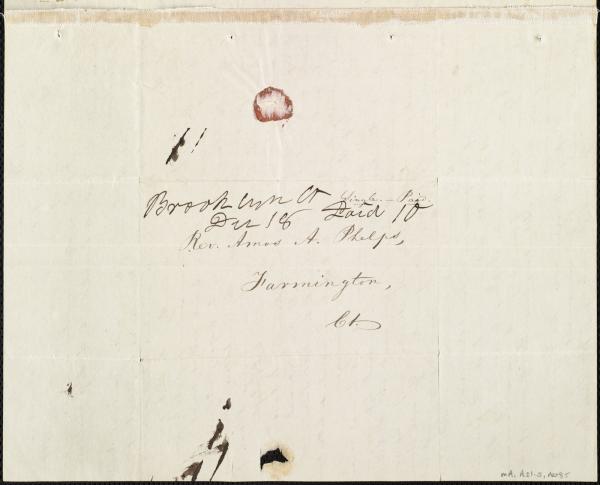 Brooklyn Ct Single – Paid.
Dec 18 Paid 10
Rev. Amos A. Phelps,
Farmington,
Ct.